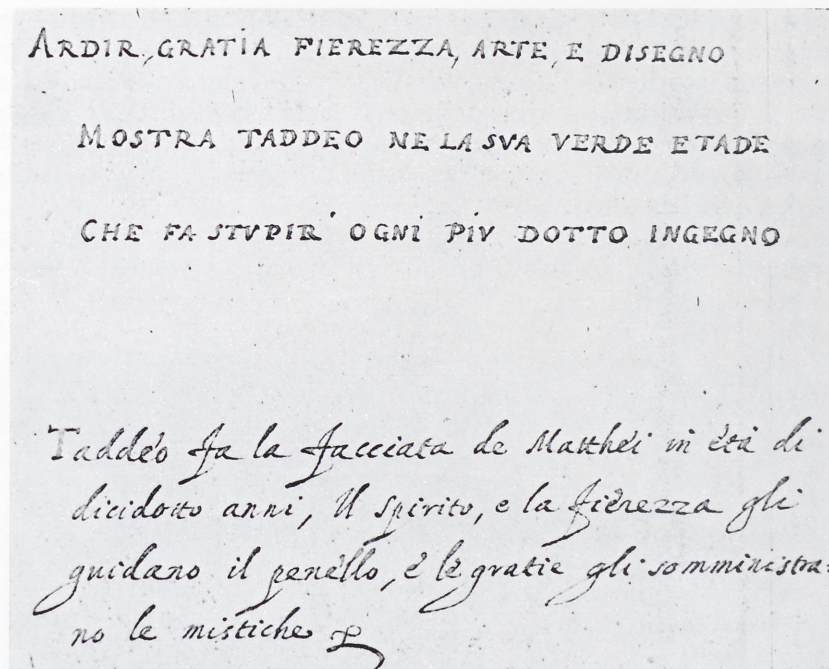 ARDIR, GRATIA FIEREZZA, ARTE, E DISEGNO
MOSTRA TADDEO NE LA SVA VERDE ETADE
CHE FA STVPIR' OGNI PIV DOTTO INGEGNO
Taddéo fa la facciata de Matthéi in étà di
dicidotto anni, Il spirito, e la fiérezza gli
guidano il penéllo, é lé gratie gli somministra=
no le mistiche